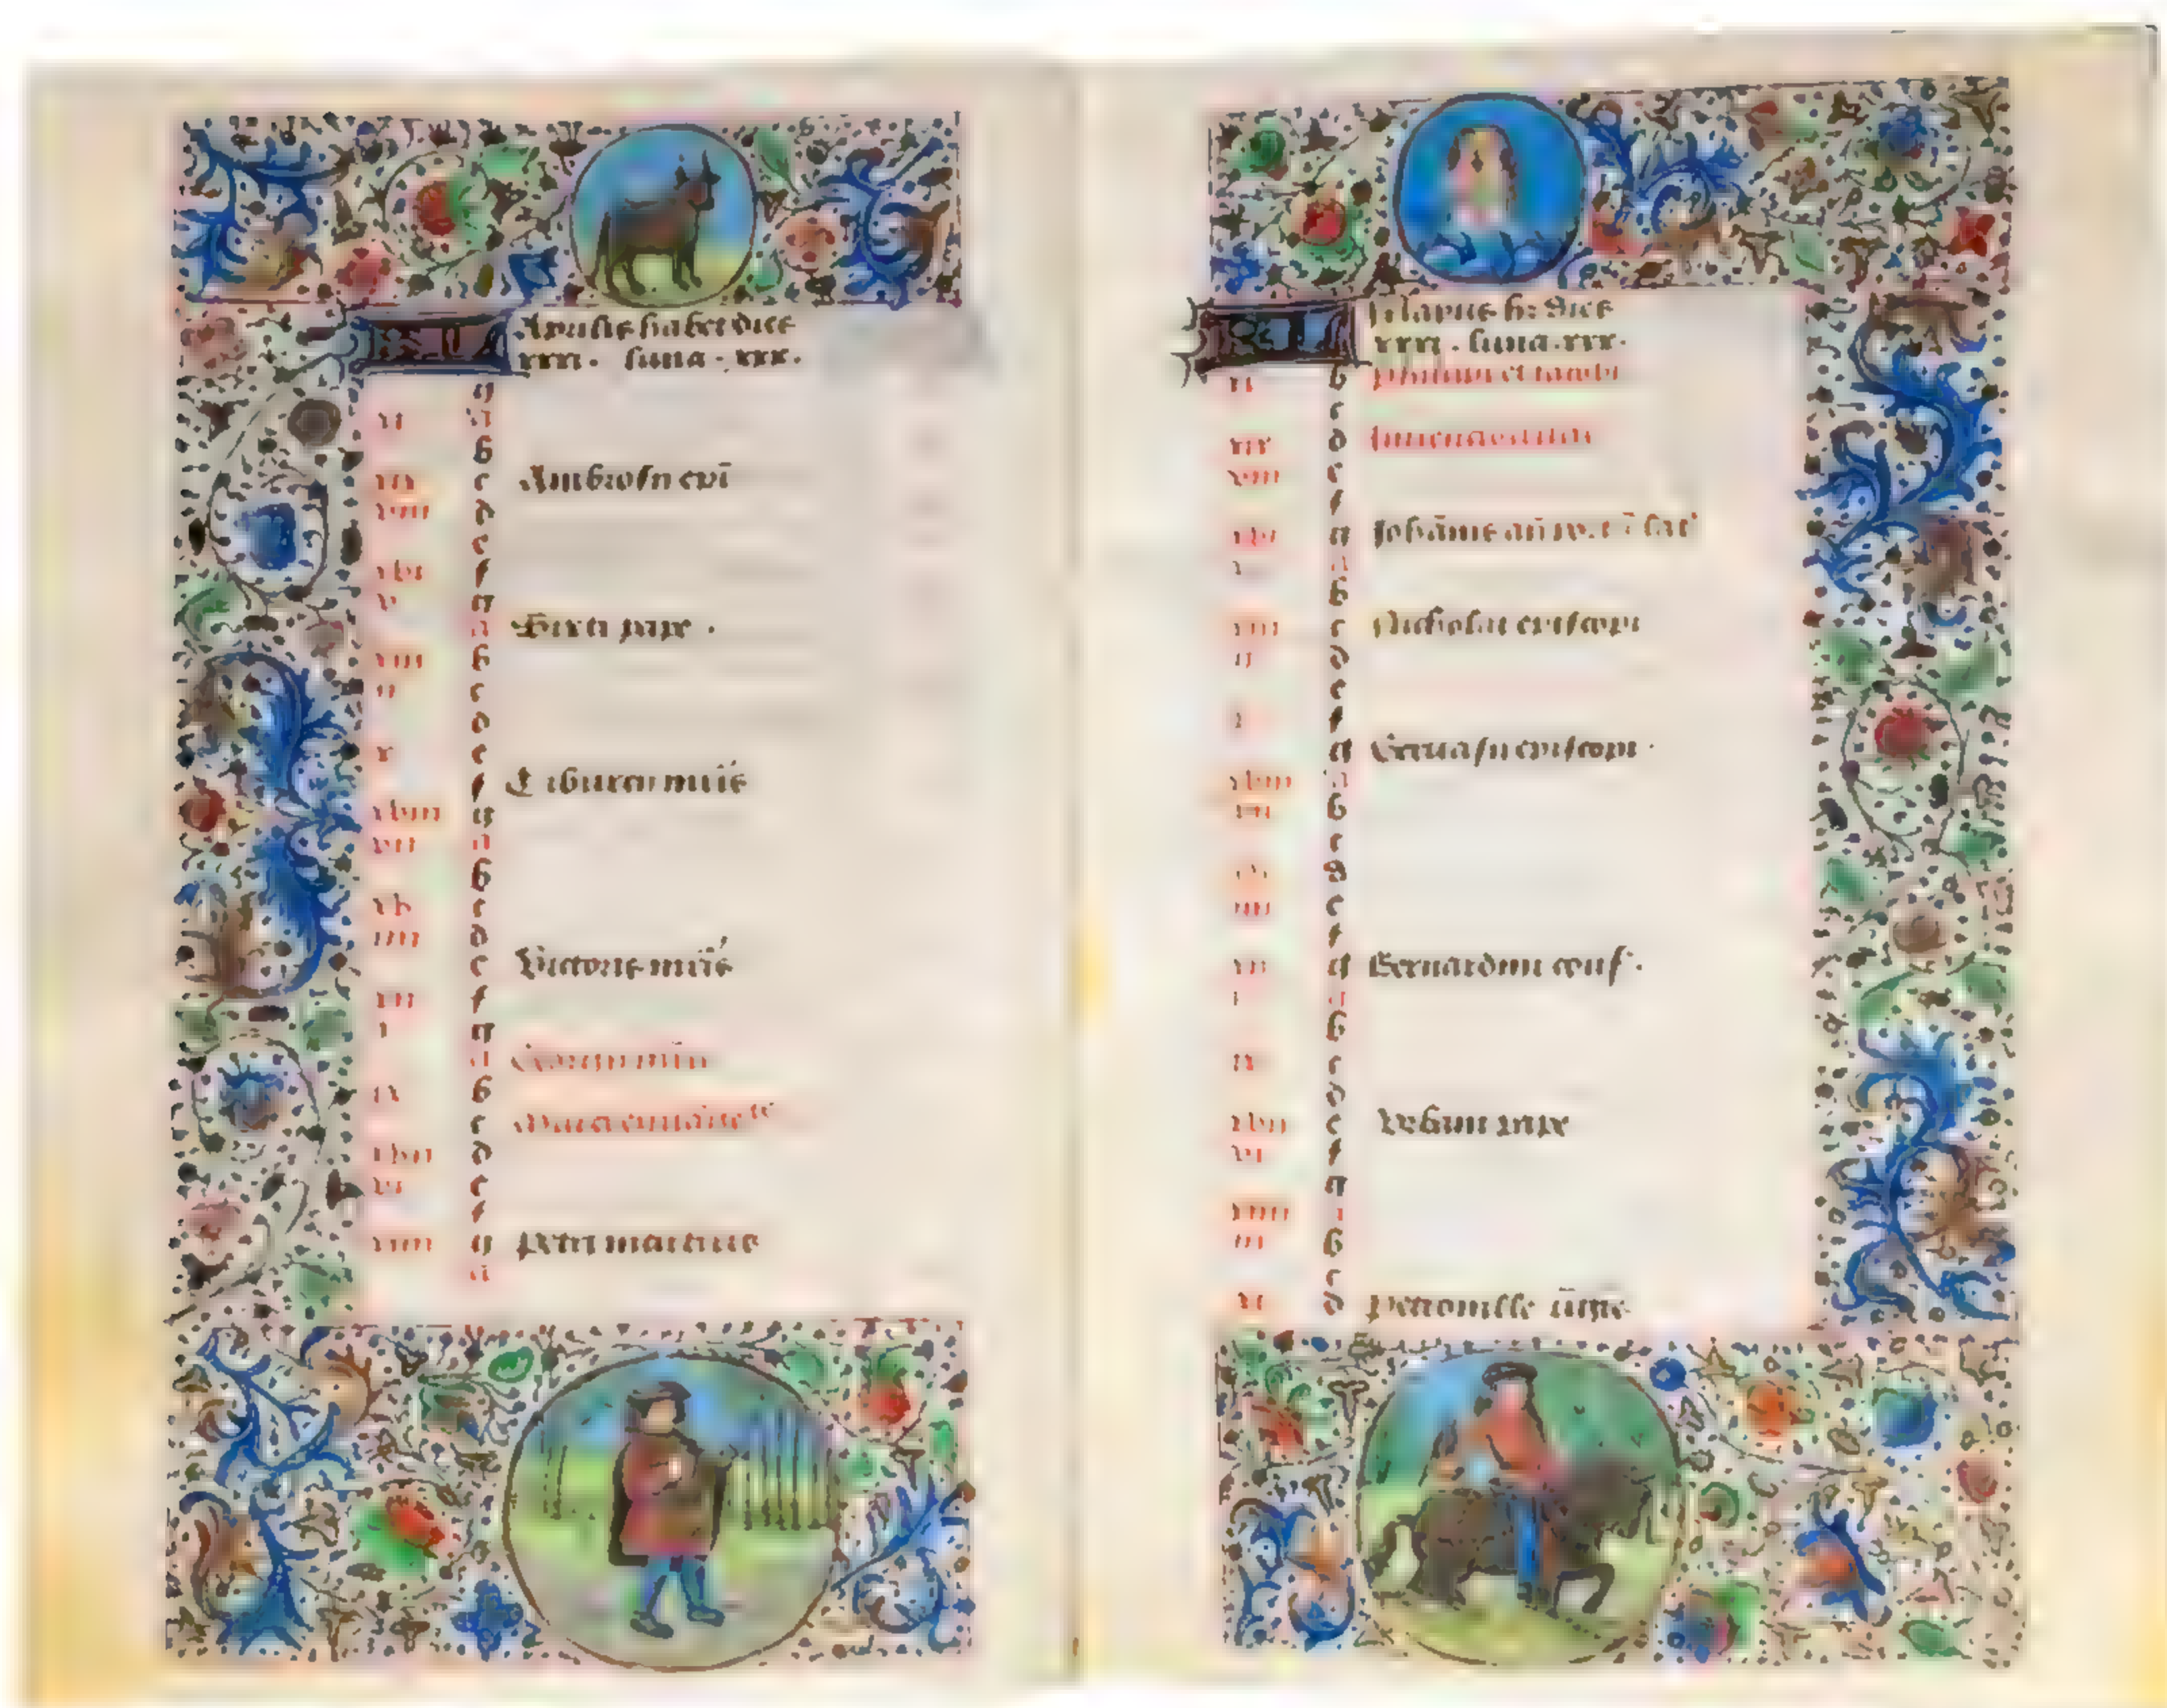 KL Aprilis habet dies
xxxi. luna. xxx.
g
xi a
b
xix c Ambrosii epi
viii d
e
xvi f
v g
a Sixti pape.
xiii b
ii c
d
x e
f Tiburcii mris
xviii g
vii a
b
xv c
iiii d
e Victoris mris
xii f
i g
a Georgii mris
ix b
c Marci
xvii d
vi e
f
xiiii g Petri martiris
a
KL Mayus h: dies
xxxi. luna. xxx.
xi b Philippi et iacobi
c
xix d
viii e
f
xvi g Johānis
v a
b
xiii c Nicholai episcopi
ii d
e
x f
g Servasii episcopi.
xviii a
vii b
c
xv d
iiii e
f
xii g Bernardini conf.
i a
b
ix c
d
xvii e Urbani pape
vi f
g
xiiii a
iii b
c
xi d Petronille